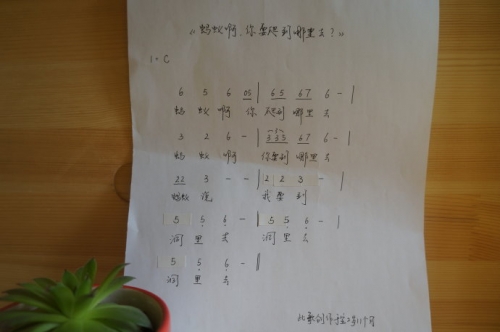 《蚂蚁啊,你要爬到哪里去?》
1=C
6 5 6 05 | 65 67 6 - |
蚂 蚁 啊 你 爬到 哪里 去
3 2 6 - | 335 67 6 - |
蚂 蚁 啊 你要到 哪里 去
22 3 - - | 2 2 3 - |
蚂蚁 说 我 要 到
5 5 6 - | 5 5 6 - |
洞 里 去 洞 里 去
5 5 6 - ‖
洞 里 去
此歌创作于
个月